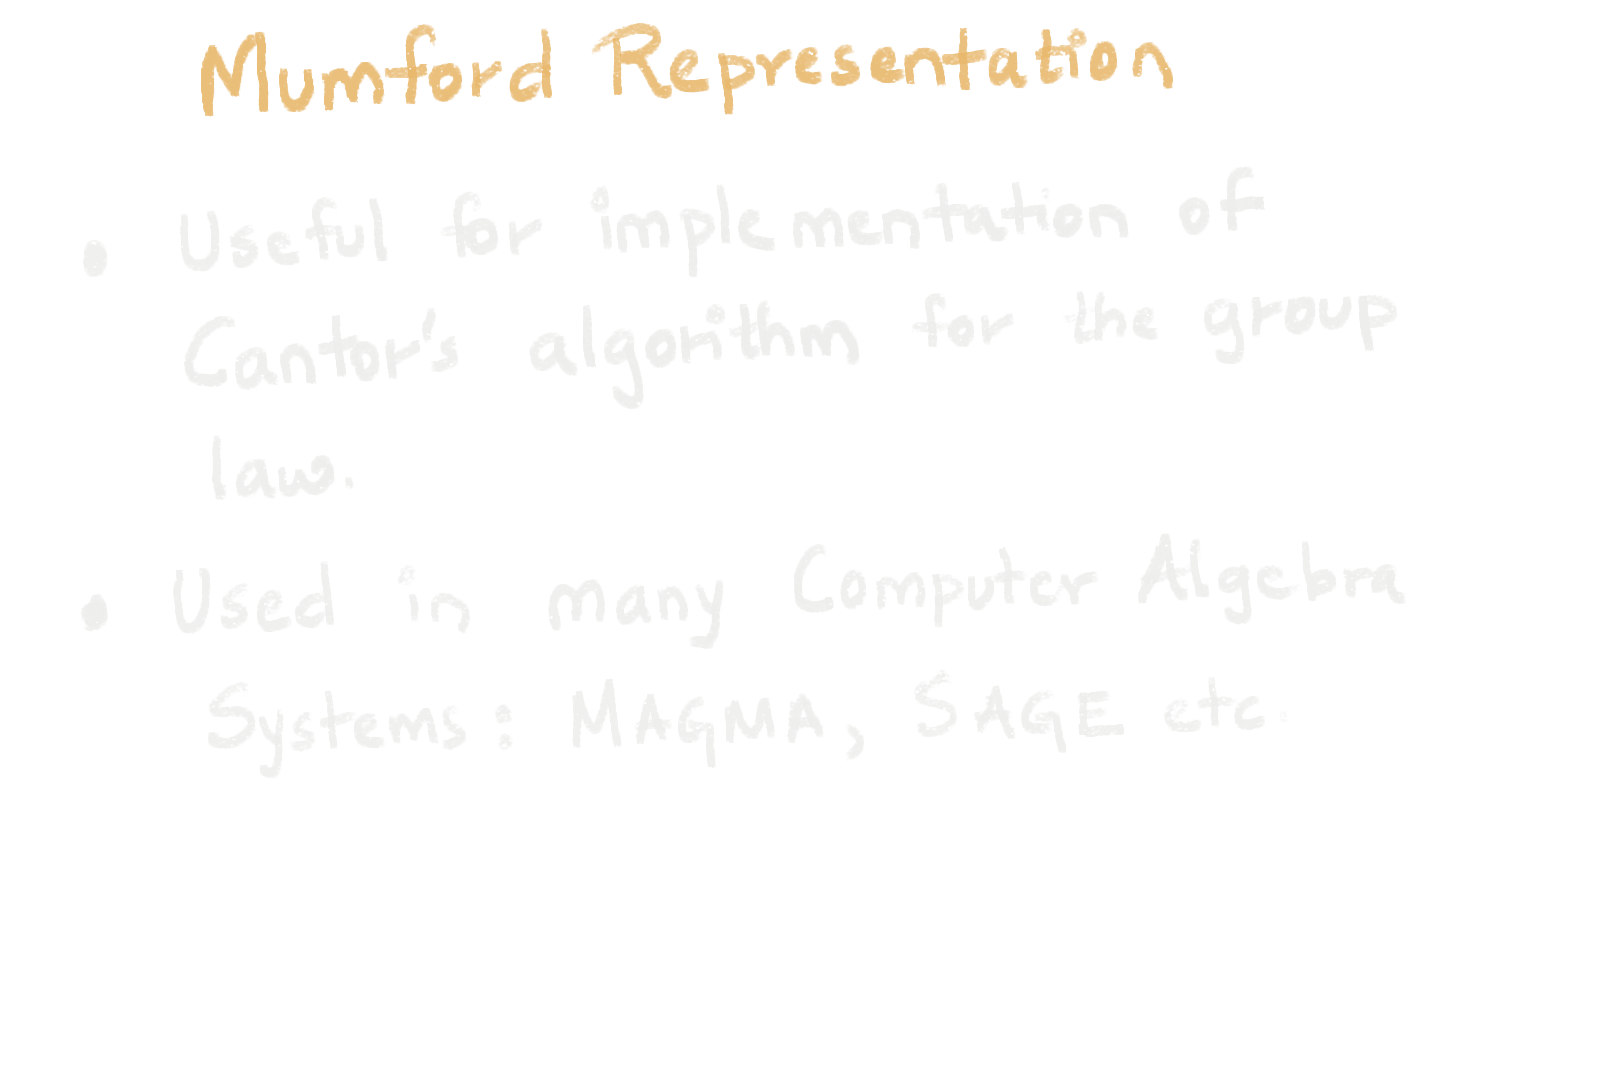 Mumford Representation
• Useful for implementation of
Cantor's algorithm for the group
law.
• Used in many Computer Algebra
Systems: MAGMA, SAGE etc.